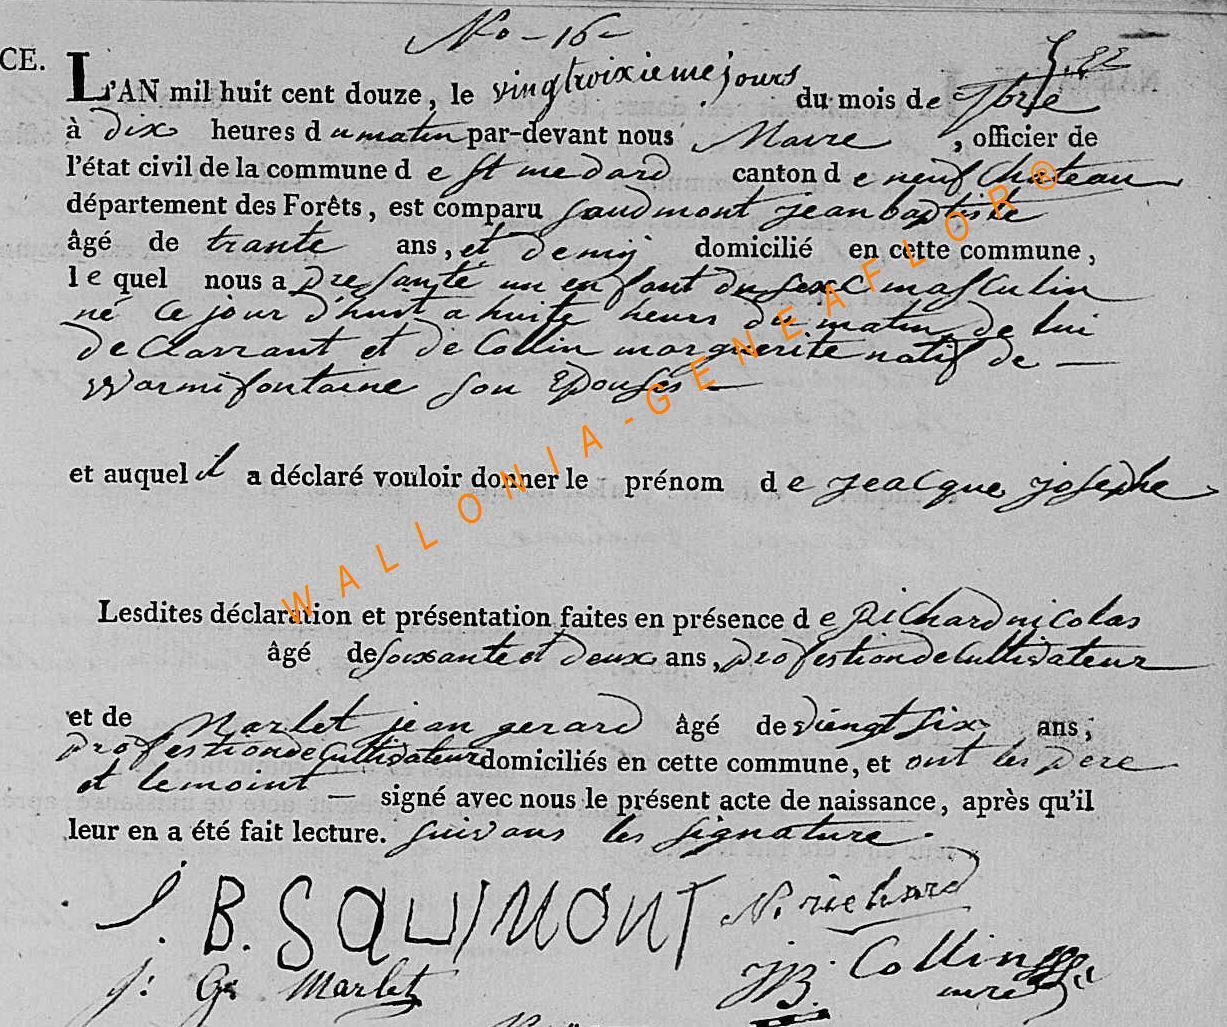 No - 16 -
CE.
L'AN mil huit cent douze, le vingtroixieme jours du mois de 7bre
à dix heures du matin par-devant nous Maire, officier de
l'état civil de la commune de St medard canton de neufchateau
département des Forêts, est comparu Saudmont jean baptiste
âgé de trante ans, et demij domicilié en cette commune,
lequel nous a presanté un enfant du sexe masculin
né ce jour d'huit a huite heurs du matin de lui
declarrant et de Collin marguerite natif de —
Warmifontaine son Epouses —
et auquel il a déclaré vouloir donner le prénom de jeacque josephe
Lesdites déclaration et présentation faites en présence de Richard nicolas
âgé de soixante et deux ans, profestion de Cultivateur
et de Marlet jean gerard âgé de viengt six ans;
profestion de Cultivateur domiciliés en cette commune, et ont les pere
et temoint — signé avec nous le présent acte de naissance, après qu'il
leur en a été fait lecture. suivans les signature.
J. B. SAUMONT N. richard
j: G. Marlet JB. Collin
mre
WALLONIA-GENEAFLOR®